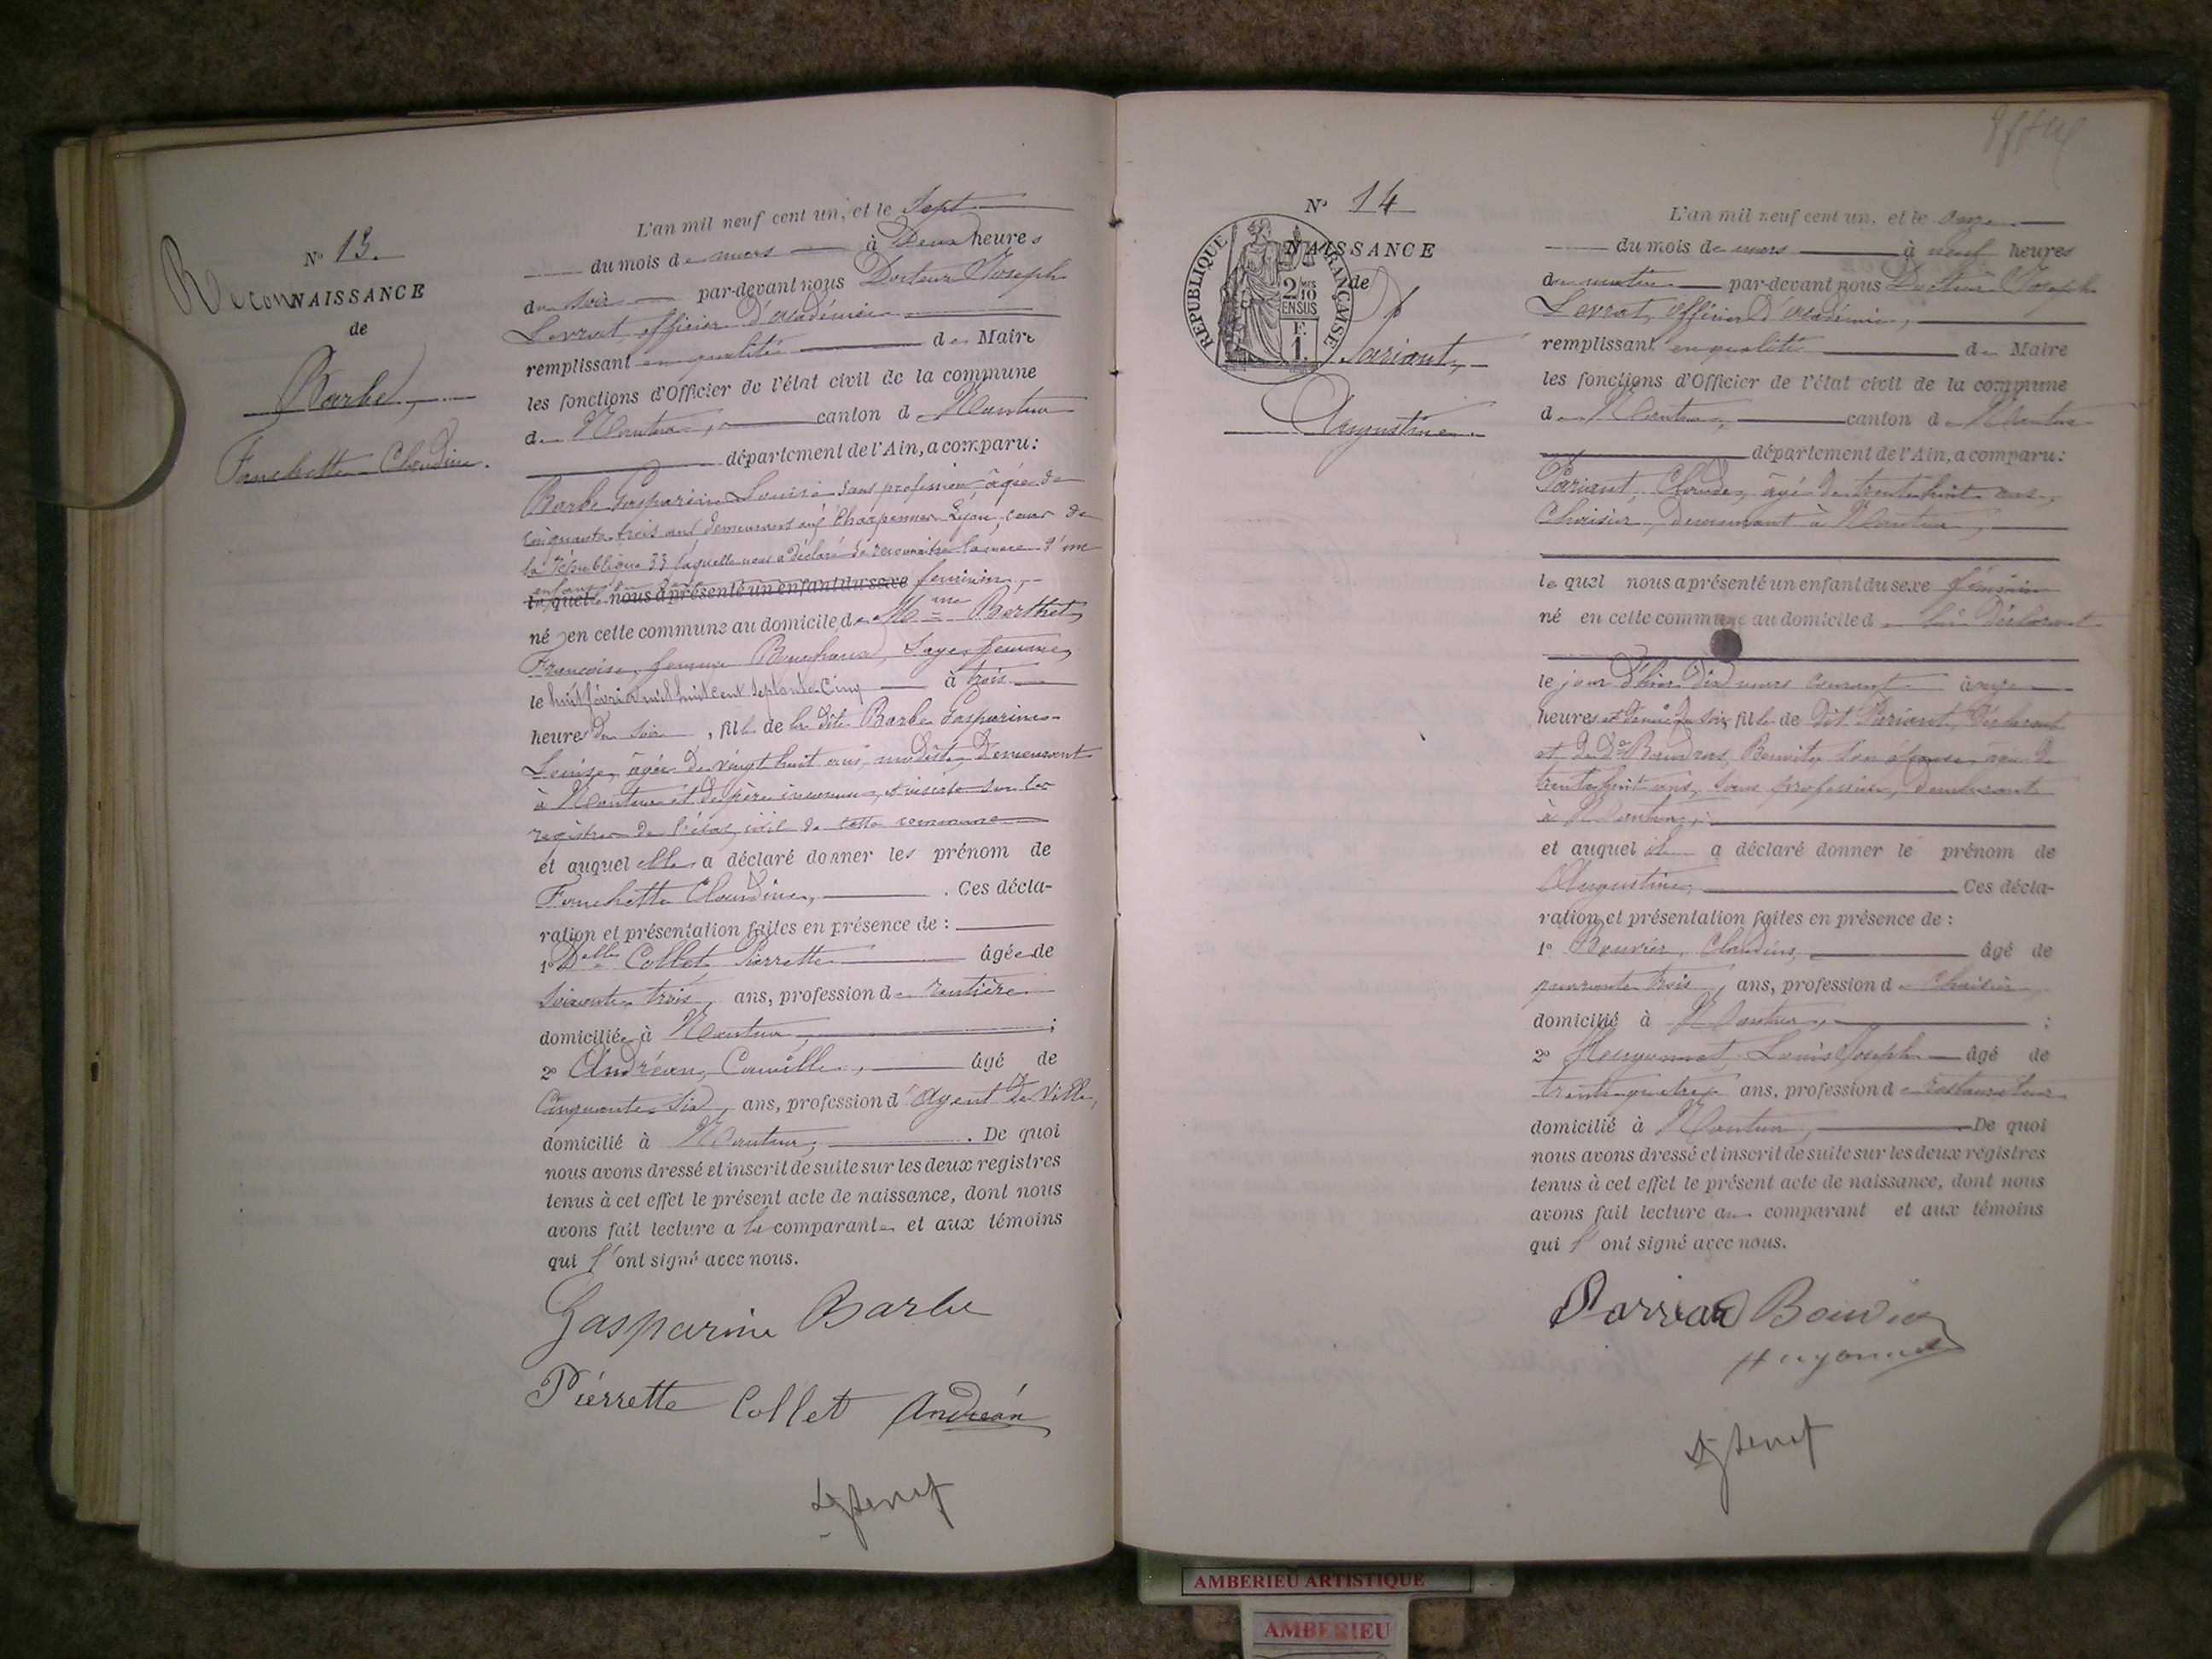 N° 13.
ReconNAISSANCE
de
Barbe,
Fanchette Claudine.
L'an mil neuf cent un, et le sept
du mois de mars à Deux heures
du soir par-devant nous Docteur Joseph
Levrat, officier d'académie
remplissant en qualité de Maire
les fonctions d'Officier de l'état civil de la commune
de Nantua, canton de Nantua
département de l'Ain, a comparu:
Barbe Gasparine Louise sans profession âgée de
cinquante trois ans demeurant aux Charpennes Lyon, cours de
la République 33 laquelle nous a déclaré se reconnaître la mere d'un
enfant du sexe
laquelle nous a présenté un enfant du sexe féminin,
né en cette commune au domicile de Mme Berthet
Françoise, femme Sage femme,
le huit février mil huit cent septante cinq à trois
heures du soir, fille de la dite Barbe Gasparine
Louise, âgée de vingt huit ans, modiste, demeurant
à Nantua et de père inconnu, et inscrite sur les
registres de l'état civil de cette commune
et auquel elle a déclaré donner les prénom de
Fanchette Claudine, . Ces décla-
ration et présentation faites en présence de :
1° Delle Collet Pierrette âgée de
soixante trois, ans, profession de rentière
domiciliée à Nantua, ;
2° Andréan, Camille, âgé de
Cinquante six, ans, profession d'Agent de Ville,
domicilié à Nantua, . De quoi
nous avons dressé et inscrit de suite sur les deux registres
tenus à cet effet le présent acte de naissance, dont nous
avons fait lecture a la comparante et aux témoins
qui l'ont signé avec nous.
Gasparine Barbe
Pierrette Collet Andréan
N° 14
NAISSANCE
de
RÉPUBLIQUE FRANÇAISE
2/10
EN SUS
1 F.
Pariant,
Augustine.
L'an mil neuf cent un, et le onze
du mois de mars à neuf heures
du matin par-devant nous Docteur Joseph
Levrat, Officier d'académie,
remplissant en qualité de Maire
les fonctions d'Officier de l'état civil de la commune
de Nantua, canton de Nantua
département de l'Ain, a comparu:
Pariant, Claude, âgé de trente huit ans,
Chaisier, demeurant à Nantua,
lequel nous a présenté un enfant du sexe féminin
né en cette commune au domicile du Déclarant
le jour d'hier dix mars courant à onze
heures et demie du soir fille de dit Pariant, Déclarant
et de De Benoite son épouse âgée de
trente huit ans, sans profession, demeurant
à Nantua,
et auquel il a déclaré donner le prénom de
Augustine, Ces décla-
ration et présentation faites en présence de :
1° Bouvier, Claudius, âgé de
quarante trois, ans, profession de Chaisier,
domicilié à Nantua, ;
2° Huyonnet Louis Joseph âgé de
trente quatre ans, profession de restaurateur
domicilié à Nantua, De quoi
nous avons dressé et inscrit de suite sur les deux registres
tenus à cet effet le présent acte de naissance, dont nous
avons fait lecture au comparant et aux témoins
qui l'ont signé avec nous.
Bouvier
AMBERIEU ARTISTIQUE
AMBERIEU